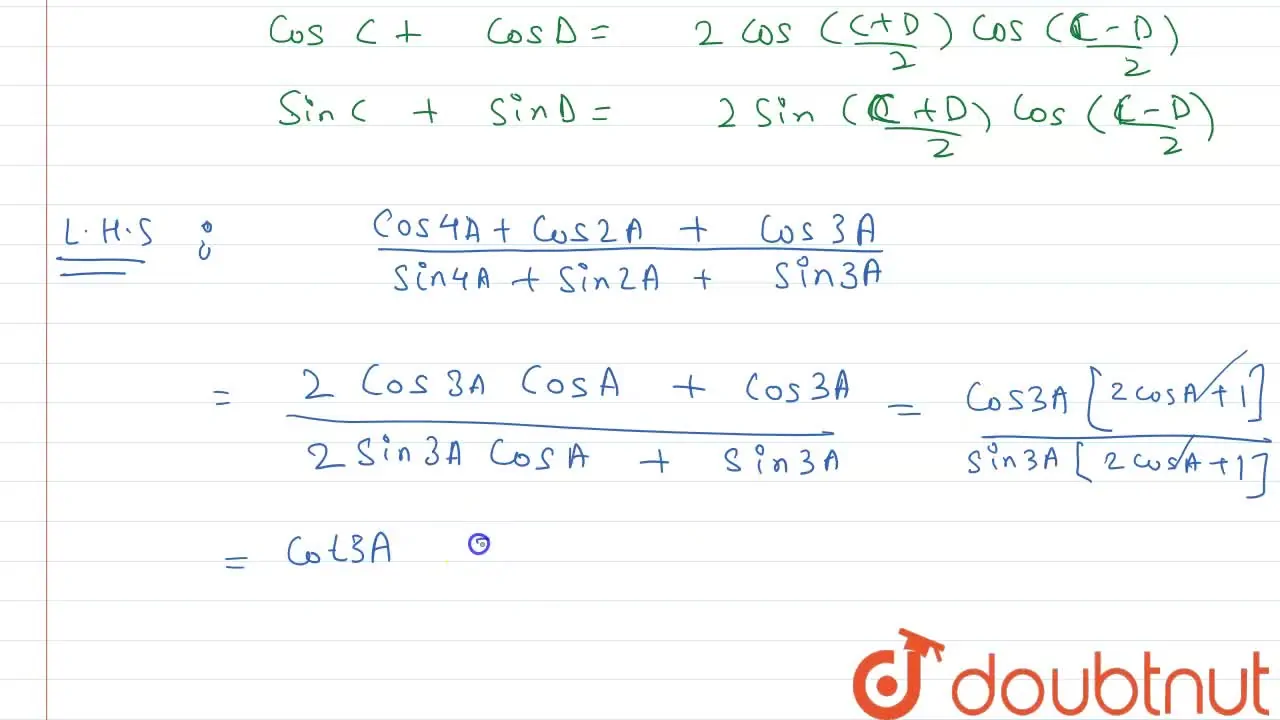 Cos C + Cos D = 2 Cos (C+D/2) Cos (C-D/2)
Sin C + Sin D = 2 Sin (C+D/2) Cos (C-D/2)
L.H.S : Cos4A + Cos2A + Cos3A
Sin4A + Sin2A + Sin3A
= 2 Cos3A CosA + Cos3A = Cos3A [2cosA+1]
2 Sin3A CosA + Sin3A Sin3A [2cosA+1]
= Cot3A
doubtnut